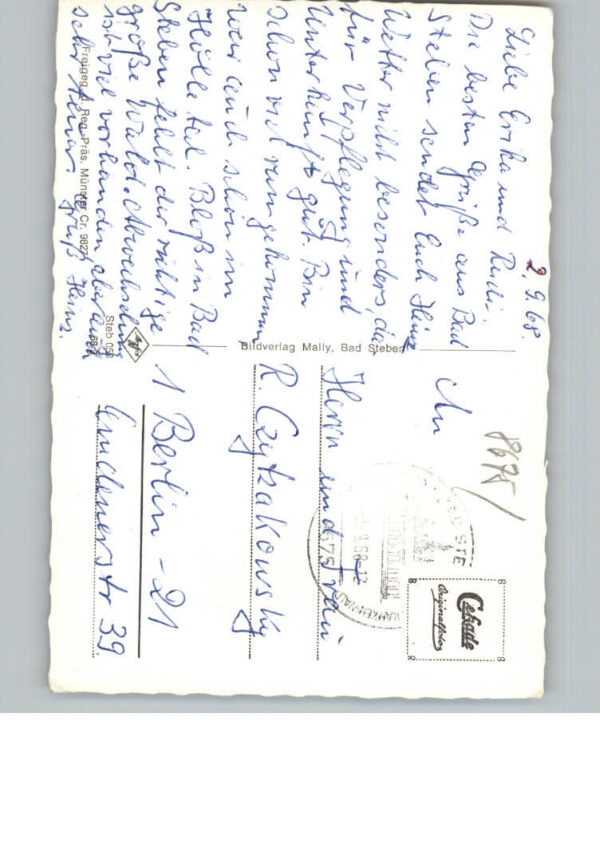 2.9.68.
Liebe Erika und Rudi.
Die besten Grüße aus Bad
Steben sendet Euch Heinz
Wetter nicht besonders, da
für Verpflegung und
Unterkunft gut. Bin
schon viel rumgekommen
war auch schon im
Höllental. Bloß in Bad
Steben fehlt der richtige
große Wald. Abwechslung
ist viel vorhanden aber auch
sehr teuer. Gruß Heinz.
Freigeg. d. Reg.-Präs. Münster Cr. 982
Steb 03
Agfa
Bildverlag Mally, Bad Steben
An
Herrn und Frau
R. Czytzakowsky
1 Berlin - 21
str 39.
8675
BAD STE
.9.68-17
8675
Cekade
Originalfoto